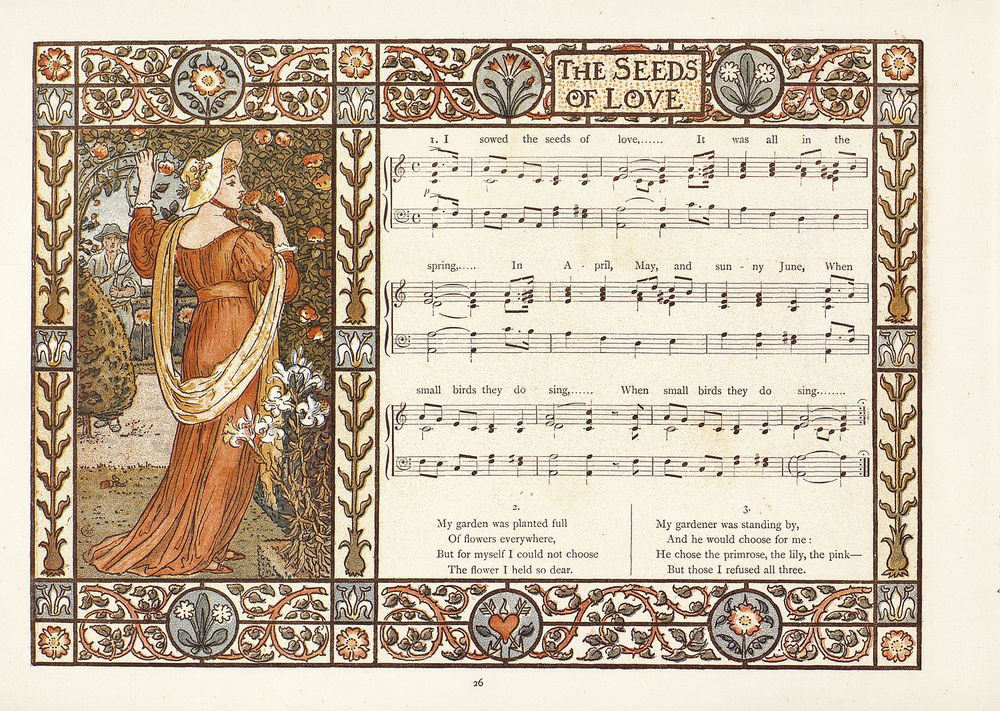 THE SEEDS
OF LOVE
1. I sowed the seeds of love,...... It was all in the
p
spring,..... In A - pril, May, and sun - ny June, When
small birds they do sing,...... When small birds they do sing........
2.
My garden was planted full
Of flowers everywhere,
But for myself I could not choose
The flower I held so dear.
3.
My gardener was standing by,
And he would choose for me :
He chose the primrose, the lily, the pink—
But those I refused all three.
26